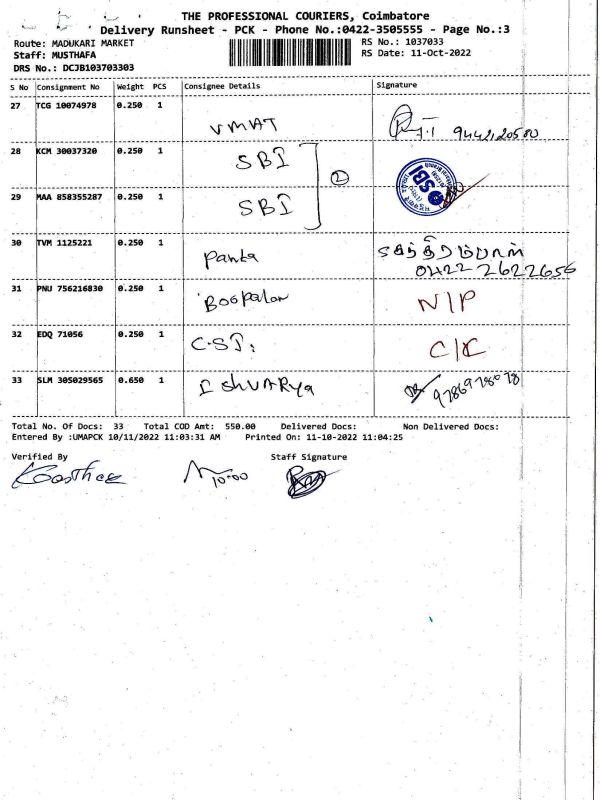 THE PROFESSIONAL COURIERS, Coimbatore
Delivery Runsheet - PCK - Phone No.:0422-3505555 - Page No.:3
Route: MADUKARI MARKET
RS No.: 1037033
Staff: MUSTHAFA
RS Date: 11-Oct-2022
DRS No.: DCJB103703303
S No Consignment No Weight PCS Consignee Details Signature
27 TCG 10074978 0.250 1 VMAT
28 KCM 30037320 0.250 1 SBI
2
SBI
29 MAA 858355287 0.250 1 SBI
30 TVM 1125221 0.250 1 0422 2622656
31 PNU 756216830 0.250 1 Boopalan N/P
32 EDQ 71056 0.250 1 C.S.I. C/C
33 SLM 305029565 0.650 1 IshVARya
Total No. Of Docs: 33 Total COD Amt: 550.00 Delivered Docs: Non Delivered Docs:
Entered By :UMAPCK 10/11/2022 11:03:31 AM Printed On: 11-10-2022 11:04:25
Verified By Staff Signature
10:00